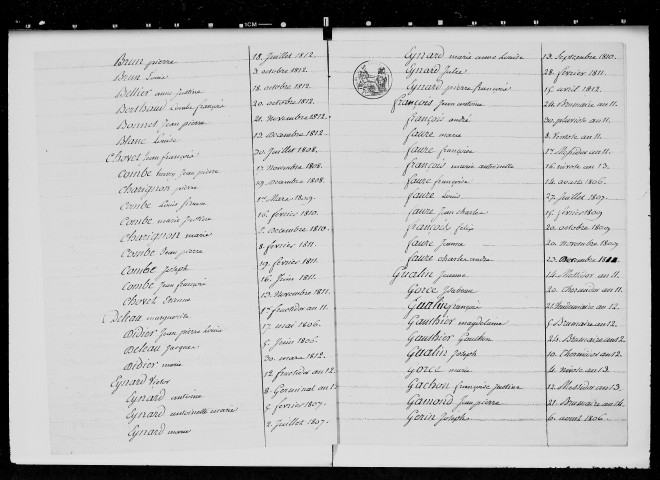 Brun pierre 18. Juillet 1812.
Brun Louis 3. octobre 1812.
Bellier anne Justine 18. octobre 1812.
Berthaud françois 20. octobre 1812.
Bonnet Jean pierre 21. Novembre 1812.
Blanc Louise 13. Decembre 1812.
Chovet Jean françois 30. Juillet 1808.
Combe Jean pierre 17. Novembre 1808.
Charignon pierre 19. Decembre 1808.
Combe Louis 1er Mars 1809.
Combe marie Justine 16. fevrier 1810.
Charignon marie 2. Decembre 1810.
Combe Jean pierre 8. fevrier 1811.
Combe Joseph 19. fevrier 1811.
Combe Jean françois 16. Juin 1811.
Chovet 13. Novembre 1811.
Beleau marguerite 1er fructidor an 12.
Didier Jean pierre Louis 17. mai 1806.
Beleau Jacques 5. Juin 1806.
Didier marie 30. mars 1812.
Eynard Victor 12. fructidor an 12.
Eynard antoine 8. Germinal an 12.
Eynard antoinette marie 5. fevrier 1807.
Eynard marie 2. Juillet 1807.
Eynard marie anne Louise 13. Septembre 1810.
Eynard Jules 28. fevrier 1811.
Eynard pierre françois 15. avril 1812.
françois Jean antoine 24. Brumaire an 11.
françois andré 30. pluviose an 11.
faure marie 8. Ventose an 11.
faure françoise 1er Messidor an 11.
françois marie antoinette 16. nivose an 13.
faure françoise 14. aout 1806.
faure Louis 27. Juillet 1807.
faure Jean charles 15. fevrier 1809
françois felix 20. octobre 1809
faure Jeanne 20. novembre 1809
faure charles andré 23. Decembre
Gualin Jeanne 14. Messidor an 11.
Gorce Isabeau 20. Thermidor an 11.
Gualin françois 21. Vendemiaire an 12.
Gauthier magdelaine 5. Brumaire an 12.
Gauthier 24. Brumaire an 12.
Gualin Joseph 10. Thermidor an 12.
Gorce marie 4. nivose an 13.
Gachon françoise Justine 12. Messidor an 13.
Gamond Jean pierre 21. Brumaire an 14.
Gerin Joseph 6. aout 1806.